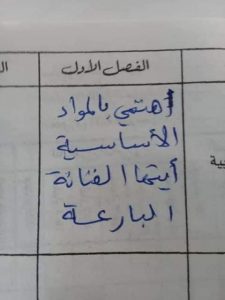 الفصل الأول
اهتمي بالمواد
الأساسية
أيتها الفنانة
البارعة